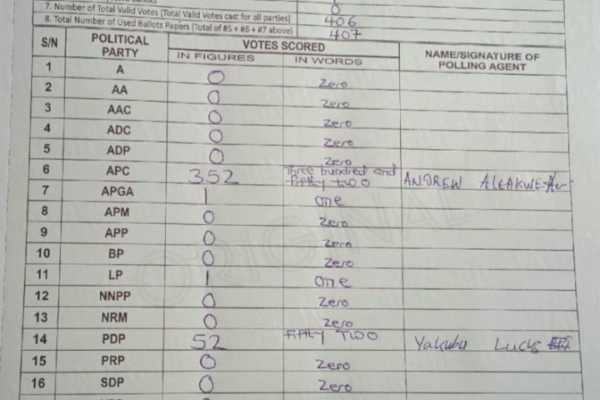 0
7. Number of Total Valid Votes (Total Valid Votes cast for all parties) 406
8. Total Number of Used Ballots Papers (Total of #5 + #6 + #7 above) 407
S/N POLITICAL PARTY VOTES SCORED NAME/SIGNATURE OF POLLING AGENT
IN FIGURES IN WORDS
1 A 0 Zero
2 AA 0 Zero
3 AAC 0 Zero
4 ADC 0 Zero
5 ADP 0 Zero
6 APC 352 Three hundred and fifty two ANDREW
7 APGA 1 one
8 APM 0 Zero
9 APP 0 Zero
10 BP 0 Zero
11 LP 1 one
12 NNPP 0 Zero
13 NRM 0 Zero
14 PDP 52 fifty Two Yakubu
15 PRP 0 Zero
16 SDP 0 Zero
ORIGINAL